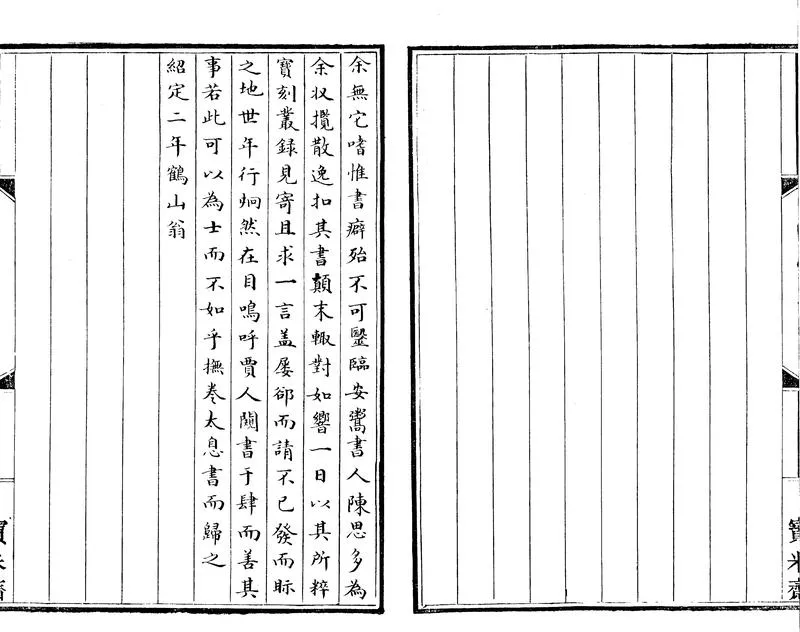 余無它嗜惟書癖殆不可毉臨安鬻書人陳思多為
余収攬散逸扣其書顛末輙對如響一日以其所粹
寶刻叢録見寄且求一言盖屡郤而請不已發而眎
之地世年行炯然在目嗚呼賈人閱書于肆而善其
事若此可以為士而不如乎撫卷太息書而歸之
紹定二年鶴山翁